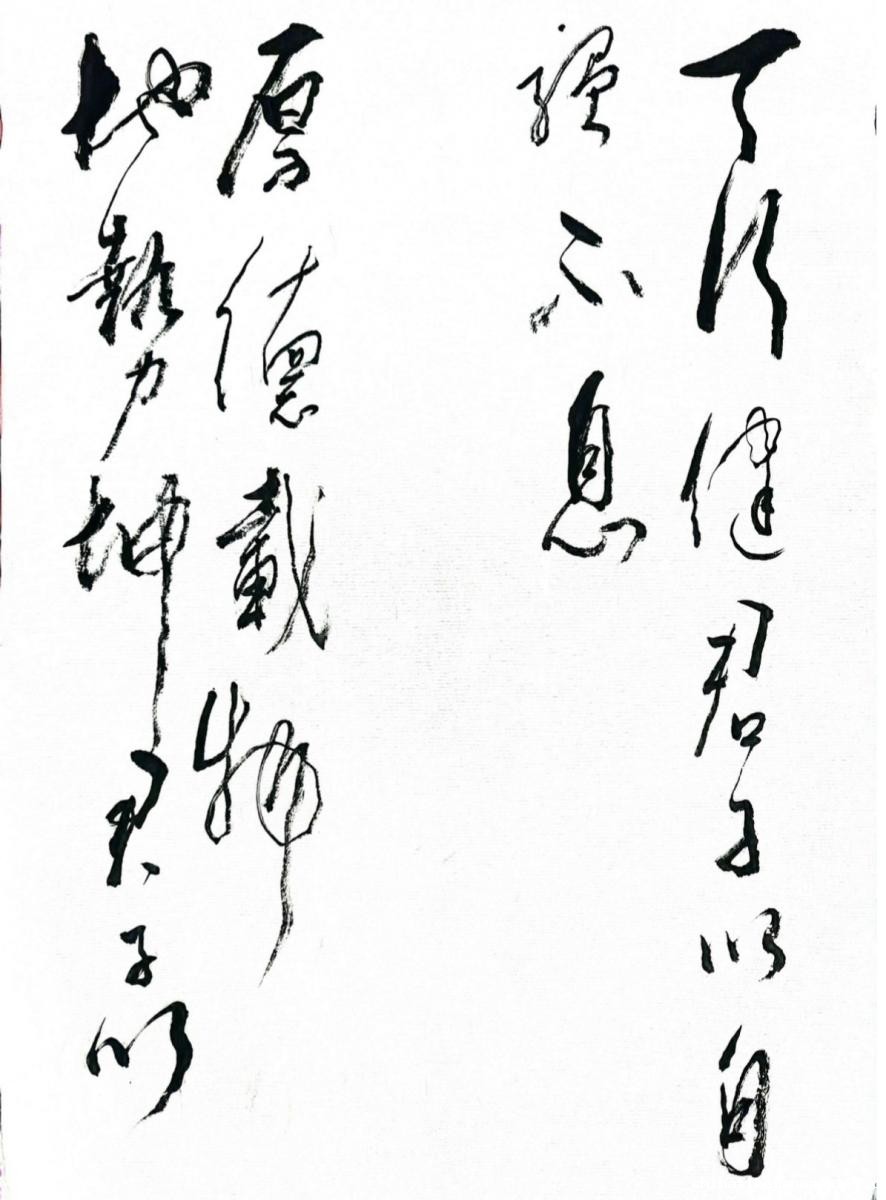 天行健君子以自
强不息
地勢坤君子以
厚德載物